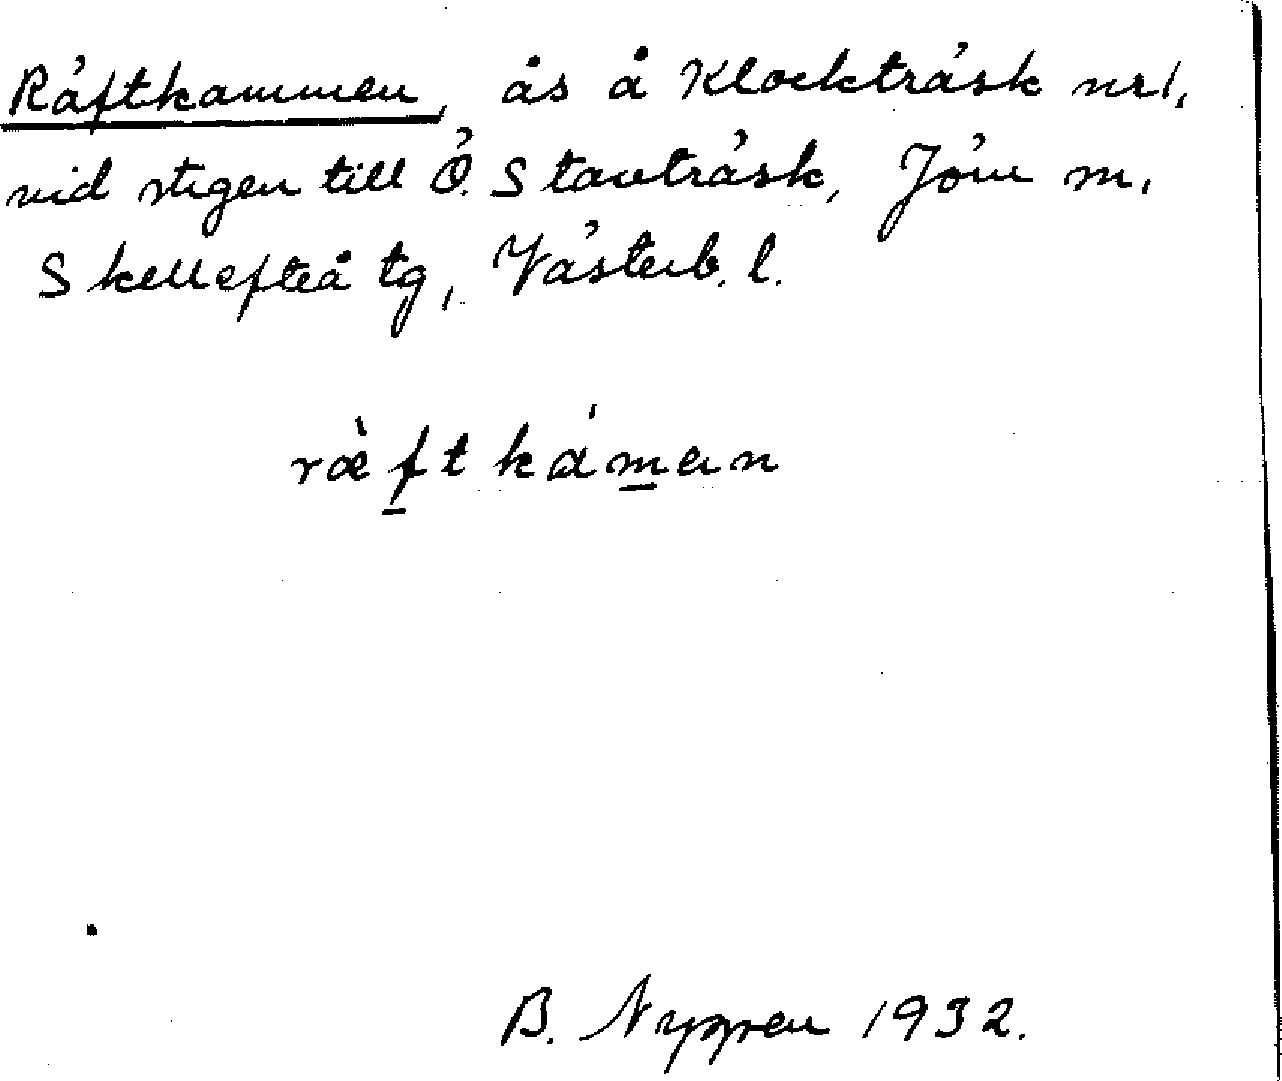 Räftkammen, ås å Klockträsk nr 1,
vid stigen till Ö. Stavträsk, Jörn m.
Skellefteå tg, Västerb. l.
ræ̀ftkáman
B. Nygren 1932.